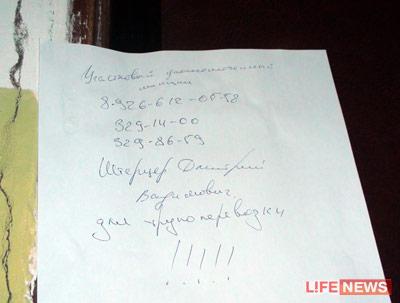 Участковый уполномоченный
милиции
8-926-612-05-58
329-14-00
329-86-59
Штерцер Дмитрий
Вадимович,
для трупоперевозки
!!!!!
LIFENEWS